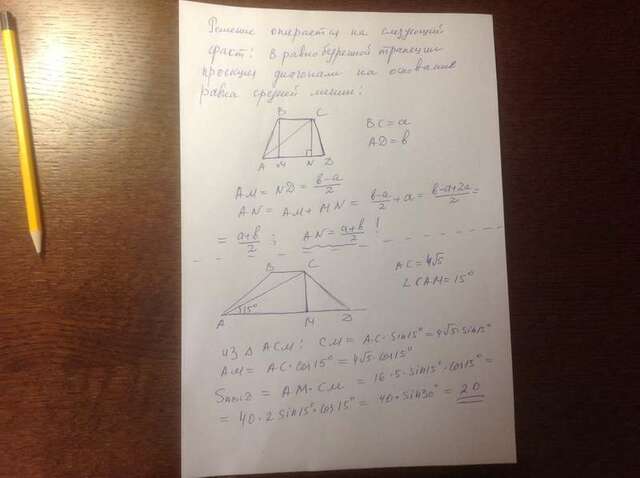 Решение опирается на следующий
факт: в равнобедренной трапеции
проекция диагонали на основание
равна средней линии:
B C
A M N D
BC = a
AD = b
AM = ND = \frac{b-a}{2}
AN = AM + MN = \frac{b-a}{2} + a = \frac{b-a+2a}{2} =
= \frac{a+b}{2} ; AN = \frac{a+b}{2} !
B C
A 15° M D
AC = 4√5
∠CAM = 15°
из Δ ACM: CM = AC · Sin15° = 4√5 · sin15°
AM = AC · cos15° = 4√5 · cos15°
S = AM · CM = 16 · 5 · sin15° · cos15° =
= 40 · 2 Sin15° · cos15° = 40 · sin30° = 20